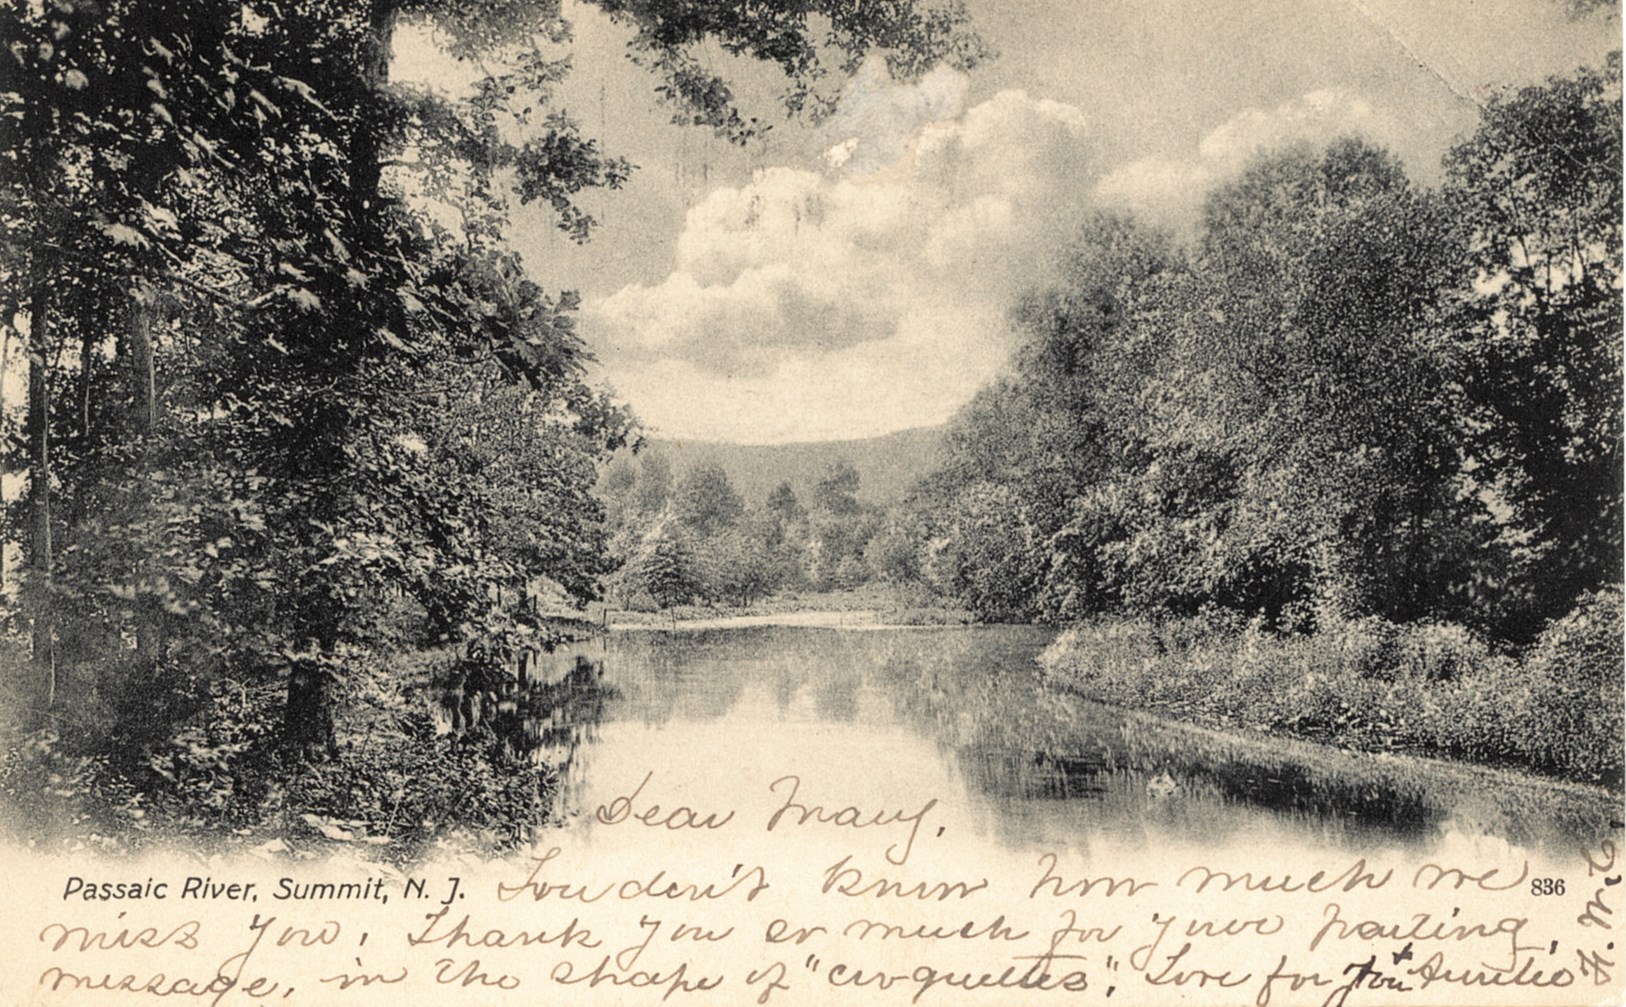 Dear Mary,
Passaic River, Summit, N. J.
You don't know how much we
836
miss you. Thank you so much for your parting
message, in the shape of "croquettes". Love for you + Auntie
H. W. C.